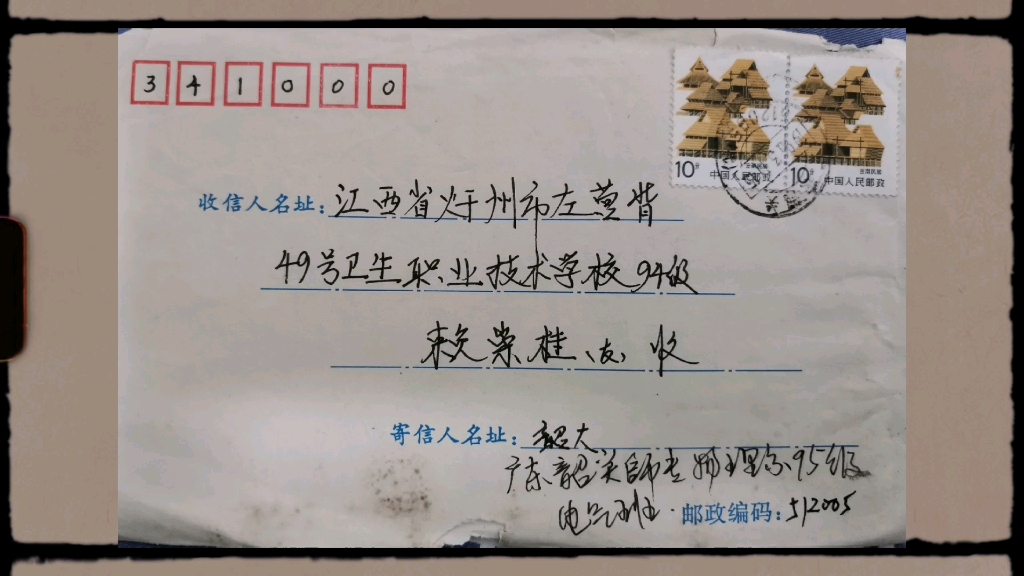 341000
10分 中国人民邮政
10分 中国人民邮政
收信人名址：江西省 州市左营背
49号卫生职业技术学校94级
赖荣桂（友）收
寄信人名址：韶大
广东韶关師专物理系95级
电 班 邮政编码：512005